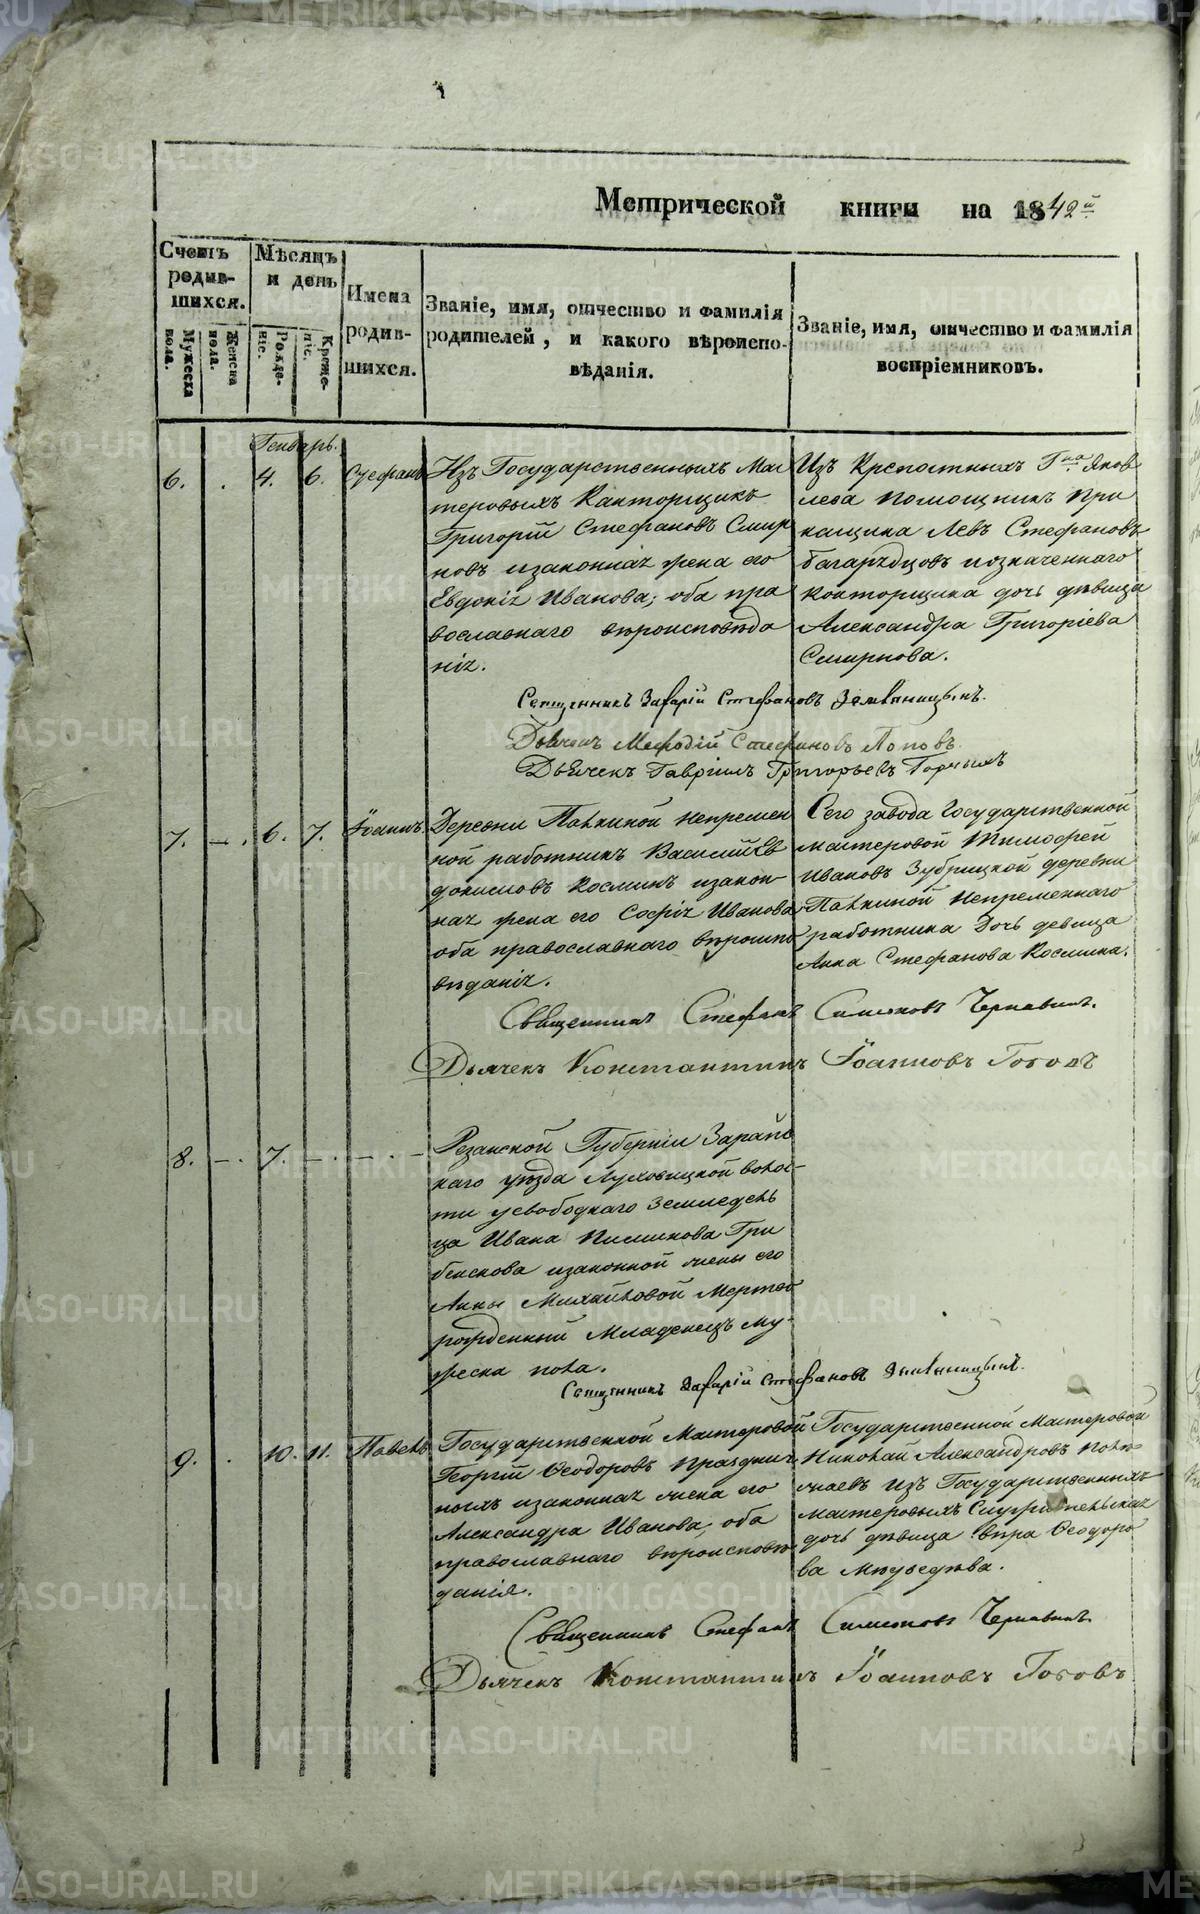 Метрической книги на 1842й
Счетъ родив-шихся.
Мужеска пола.
Женска пола.
Мѣсяцъ и день
Рожде-ніе.
Креще-ніе.
Имена родив-шихся.
Званіе, имя, отчество и фамилія
родителей, и какого вѣроиспо-
вѣданія.
Званіе, имя, отчество и фамилія
воспріемниковъ.
Генварь.
6. 4. 6. Стефанъ
Изъ Государственныхъ Мас
теровыхъ Канторщикъ
Григорій Стефановъ Смир
новъ изаконная жена его
Евдокія Иванова; оба пра
вославнаго вѣроисповѣда
нія.
Изъ Крепостныхъ Гна Яков
лева помощникъ при
кащика Левъ Стефановъ
багарядцовъ иозначеннаго
конторщика дочь дѣвица
Александра Григоріева
Смирнова.
Священникъ Захарій Стефановъ Земляницынъ.
Дьяконъ Мефодій Стефановъ Поповъ.
Дьячекъ Гавріилъ Григорьевъ Горныхъ
7. 6. 7. Іоаннъ.
Деревни Палкиной Непремен
ной работникъ Василій Ев
докимовъ Косминъ изакон-
ная жена его Софія Иванова
оба православнаго вѣроиспо
вѣданія.
Сего завода Государственной
мастеровой Тимофей
Ивановъ Зубрицкой деревни
Палкиной Непременнаго
работника Дочь девица
Анна Стефанова Космина.
Священникъ Стефанъ Симеоновъ Чернавинъ.
Дьячекъ Константинъ Іоанновъ Гововъ
8. 7.
Резанской Губерніи Зарайс
каго уѣзда Луховицкой волос-
ти усвободнаго Земледель
ца Ивана Пиминова Гри
изаконной жены его
Анны Михайловой Мертво
рожденный Младенецъ му-
жеска пола.
Священникъ Захарій Стефановъ Земляницынъ.
9. 10. 11. Павелъ
Государственной Мастеровой
Георгій Ѳеодоровъ Праздник
ныхъ изаконная жена его
Александра Иванова, оба
православнаго вѣроисповѣ
данія.
Государственной Мастеровой
Николай Александровъ
изъ Государственныхъ
мастеровыхъ
дочь дѣвица Вѣра Ѳеодоро
ва Мѣдведѣва.
Священникъ Стефанъ Симеоновъ Чернавинъ.
Дьячекъ Константинъ Іоанновъ Гововъ
METRIKI.GASO-URAL.RU